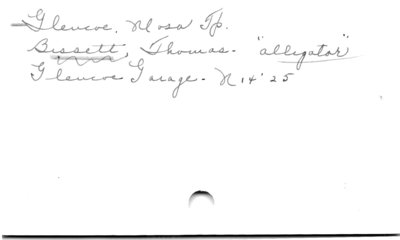 Glencoe, Mosa Tp.
Bissett, Thomas. "alligator"
Glencoe Garage. N 14 '25